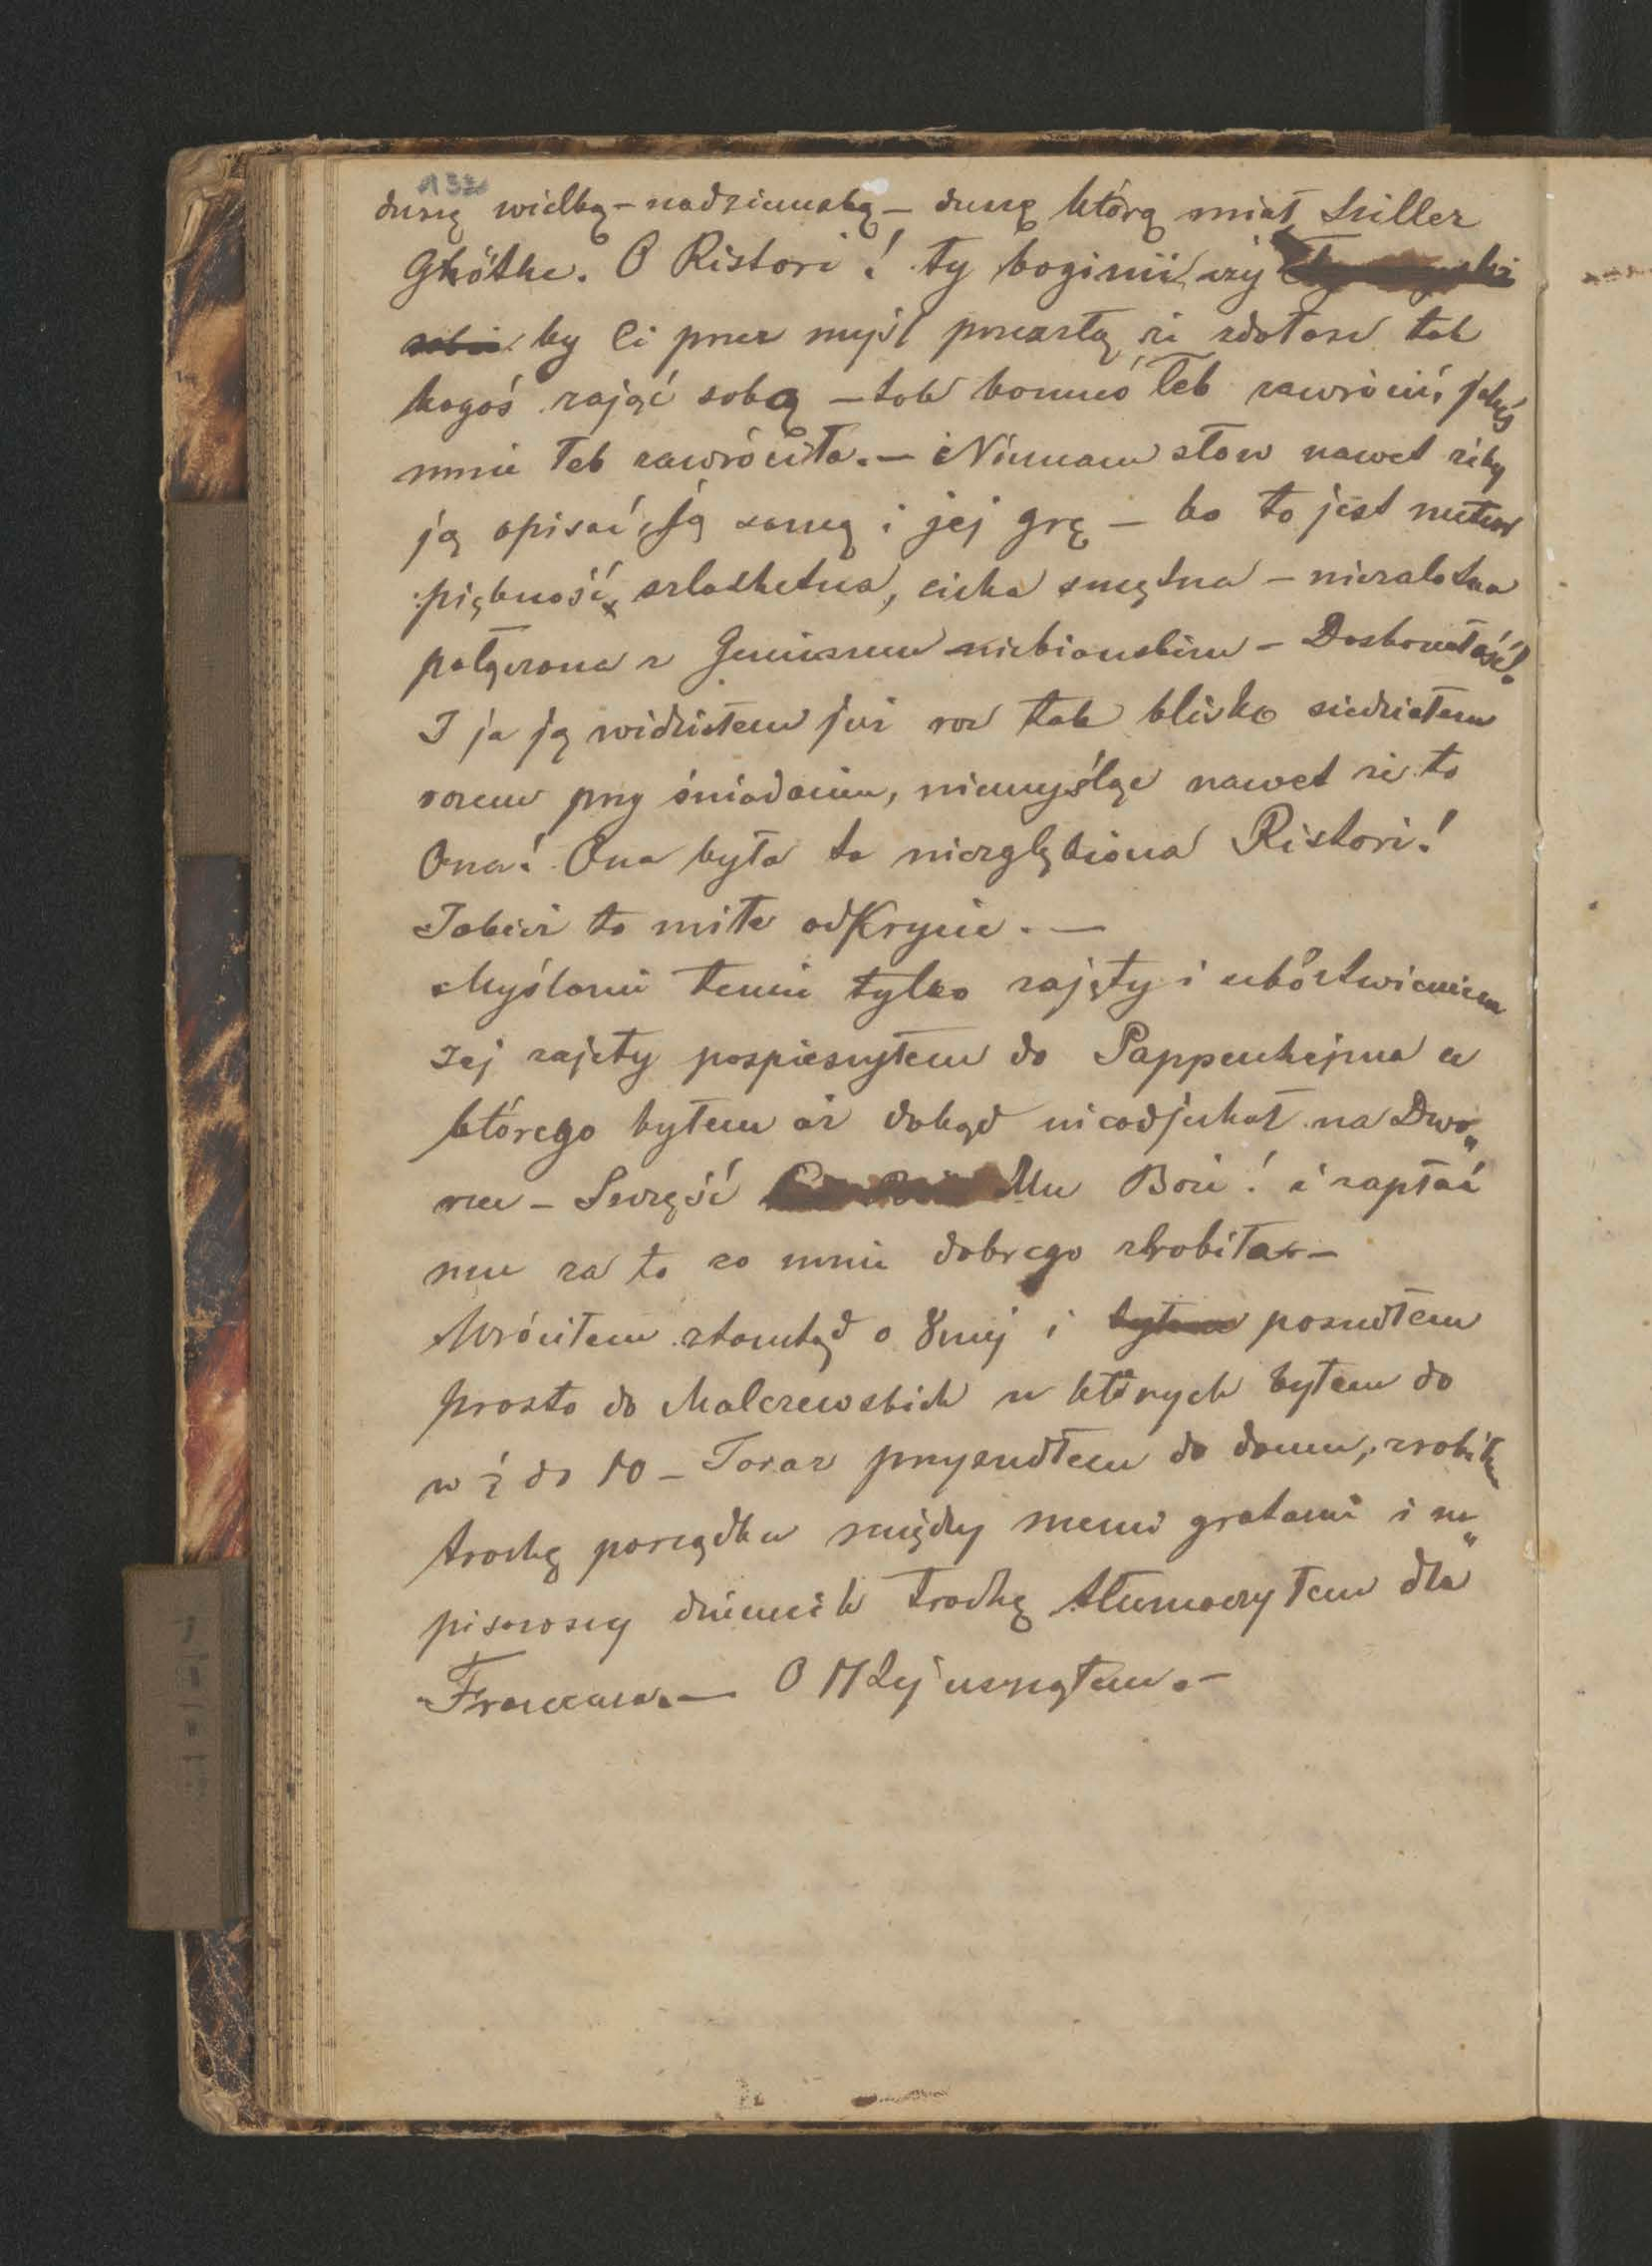 132
duszę wielką – nadziemską – duszę którą miał Sziller
Ghöthe. O Ristori! ty boginii czy
by Ci przez myśl przeszłą że zdołasz tak
kogoś zająć sobą – tak komuś łeb zawrócić jakeś
mnie łeb zawróciła. – Niemam słow nawet żeby
ją opisać, Ją samą i jej grę – bo to jest
piękność, szlachetna, cicha smętna – niezalotna
połączona z Geniuszem niebianskim – Doskonałość!
I ja ją widziałem już raz tak blisko siedziałem
razem przy śniadaniu, niemyśląc nawet że to
Ona! Ona była ta niezgłębiona Ristori!
Jakież to miłe odKrycie. –
Myślami temi tylko zajęty i ubóstwieniem
Jej zajęty pospieszyłem do Pappenhejma u
którego byłem aż dokąd nieodjechał na Dwo„
rzec – Szczęść Mu Boże! i zapłać
mu za to co mnie dobrego zrobiła –
Wróciłem ztamtąd o 8mej i byłem poszedłem
prosto do Malczewskich u których byłem do
w ½ do 10 – Teraz przyszedłem do domu, zrobiłem
trochę porządku między memi gratami i na„
pisawszy dziennik trochę tłumaczyłem dla
Francuza. – O 12ej usnąłem. –